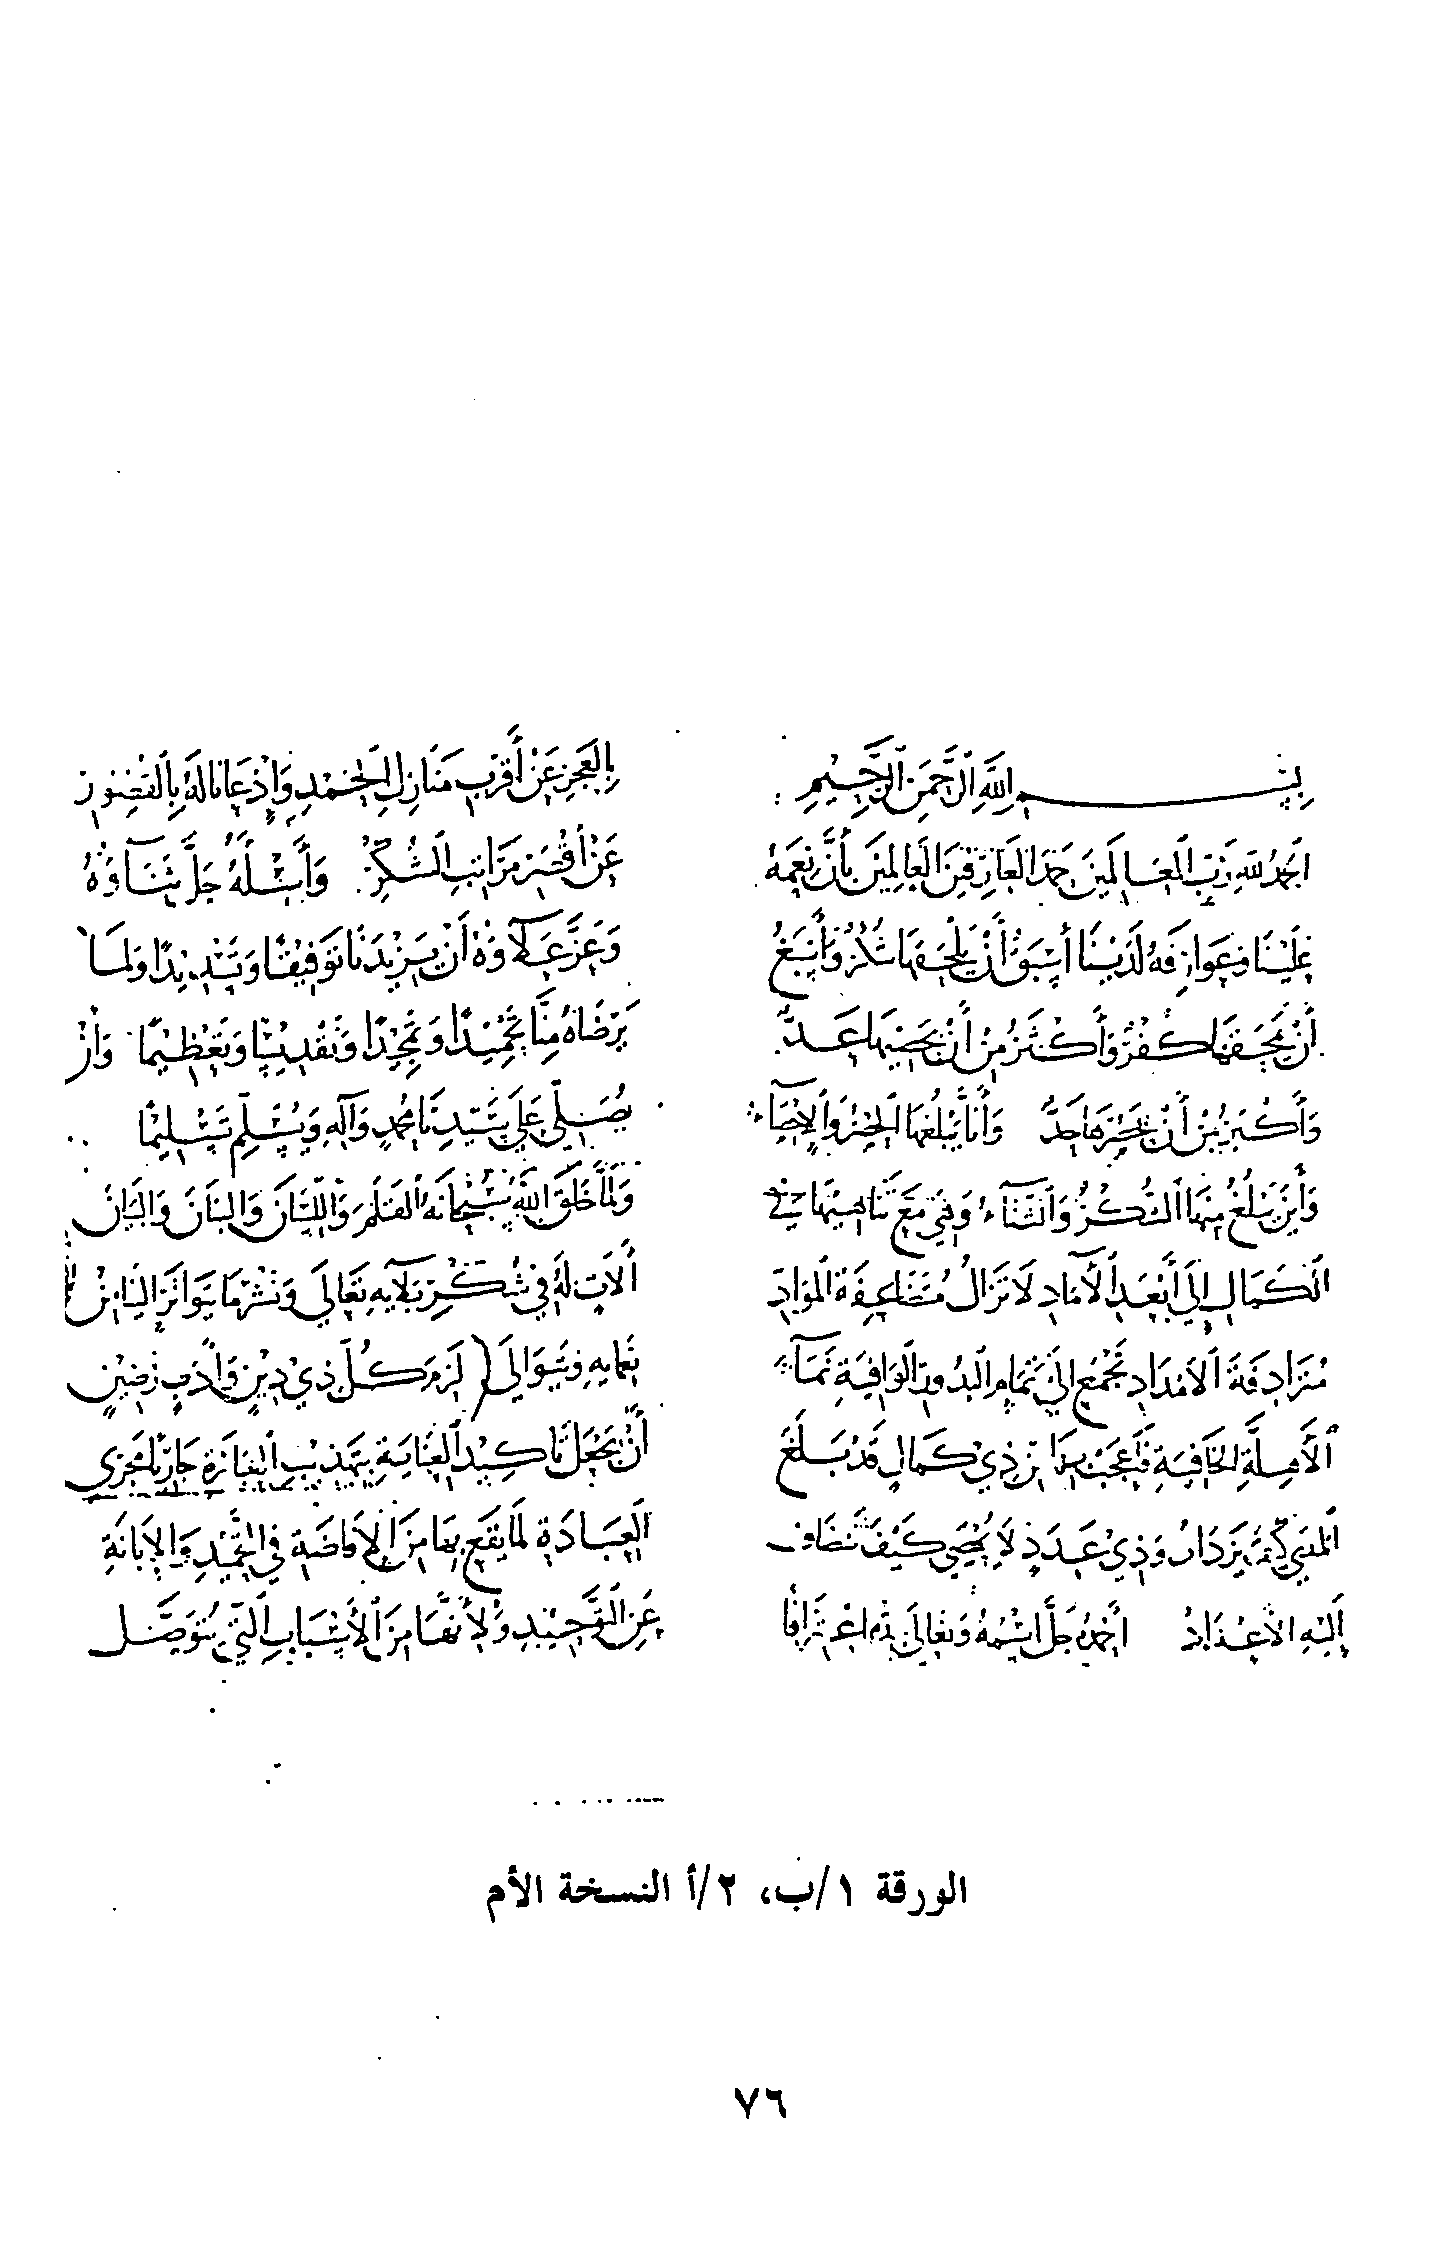 بِسْمِ اللَّهِ الرَّحْمَنِ الرَّحِيمِ
الحَمْدُ لِلَّهِ رَبِّ العَالَمِينَ حَمْدَ العَارِفِينَ العَالِمِينَ بِأَنَّ نِعَمَهُ
عَلَيْنَا وَعَوَارِفَهُ لَدَيْنَا أَسْبَقُ أَنْ يَلْحَقَهَا شُكْرٌ وَأَسْبَغُ
أَنْ يَمْحَقَهَا كُفْرٌ وَأَكْثَرُ مِنْ أَنْ يُحْصِيَهَا عَدٌّ
وَأَكْبَرُ مِنْ أَنْ يَحْصُرَهَا حَدٌّ وَأَنَّى يَبْلُغُهَا الحَصْرُ وَالإِحْصَاءُ
وَأَيْنَ يَبْلُغُ مِنْهَا الشُّكْرُ وَالثَّنَاءُ وَهِيَ مَعَ تَنَاهِيهَا فِي
الكَمَالِ إِلَى أَبْعَدِ الآمَادِ لَا تَزَالُ مُتَضَاعِفَةَ المَوَادِّ
مُتَرَادِفَةَ الأَمْدَادِ تَجْمَعُ إِلَى تَمَامِ البُدُورِ الوَافِيَةِ نَمَاءَ
الأَهِلَّةِ الخَافِيَةِ فَأَعْجِبْ بِهَا مِنْ ذِي كَمَالٍ قَدْ بَلَغَ
المُنْتَهَى يَزْدَادُ وَذِي عَدَدٍ لَا يُحْصَى كَيْفَ تُضَافُ
إِلَيْهِ الأَعْدَادُ أَحْمَدُهُ جَلَّ اسْمُهُ وَتَعَالَى اعْتِرَافًا
بِالعَجْزِ عَنْ أَقْرَبِ مَنَازِلِ الحَمْدِ وَإِذْعَانًا لَهُ بِالقُصُورِ
عَنْ أَقْصَرِ مَرَاتِبِ الشُّكْرِ وَأَسْأَلُهُ جَلَّ ثَنَاؤُهُ
وَعَزَّ عَلَاؤُهُ أَنْ يَزِيْدَنَا تَوْفِيْقًا وَتَسْدِيدًا وَلِمَا
يَرْضَاهُ مِنَّا تَحْمِيْدًا وَتَمْجِيْدًا وَتَقْدِيسًا وَتَعْظِيْمًا وَأَنْ
يُصَلِّيَ عَلَى سَيِّدِنَا مُحَمَّدٍ وَآلِهِ وَيُسَلِّمَ تَسْلِيْمًا
وَلَمَّا خَلَقَ اللَّهُ سُبْحَانَهُ القَلَمَ وَاللِّسَانَ وَالبَنَانَ وَالبَيَانَ
آلَاتٍ لَهُ فِي شُكْرِ آلَايِهِ تَعَالَى وَنَشْرِ مَا يَتَوَاتَرُ
نَعْمَايِهِ وَيَتَوَالَى لَزِمَ كُلَّ ذِي دِيْنٍ وَأَدَبٍ رَصِيْنٍ
أَنْ يَجْعَلَ تَأْكِيْدَ العِنَايَةِ بِتَهْذِيْبِ العِبَارَةِ جَارِيًا مَجْرَى
العِبَادَةِ لِمَا يَقَعُ بِهَا مِنَ الإِفَاضَةِ فِي التَّحْمِيدِ وَالإِبَانَةِ
عَنِ التَّوْحِيْدِ وَلِأَنَّهَا مِنَ الأَسْبَابِ الَّتِي يُتَوَصَّلُ
الورقة ١/ب، ٢/أ النسخة الأم
٧٦